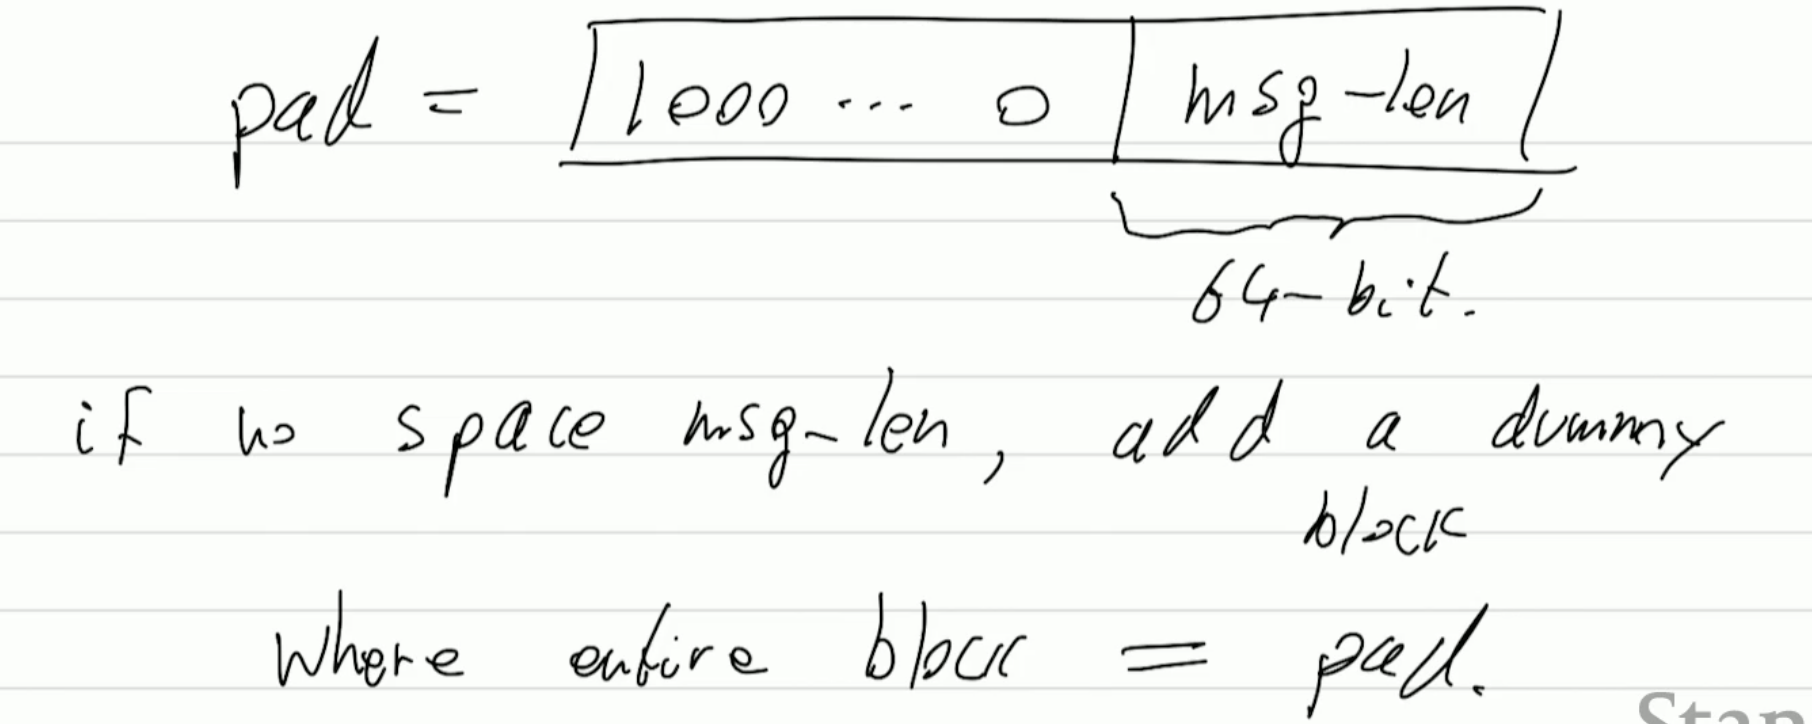 pad = 1000 ... 0 msg-len
64-bit.
if no space msg-len, add a dummy
block
where entire block = pad.
Stan